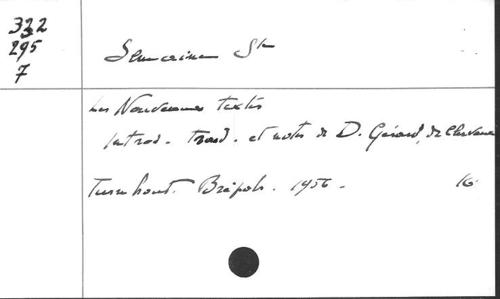 322
295
7
Semaine Ste
Les Nouveaux textes
Introd. Trad. et notes de D. Gérard, de Clervaux
Turnhout. Brépols. 1956.
16